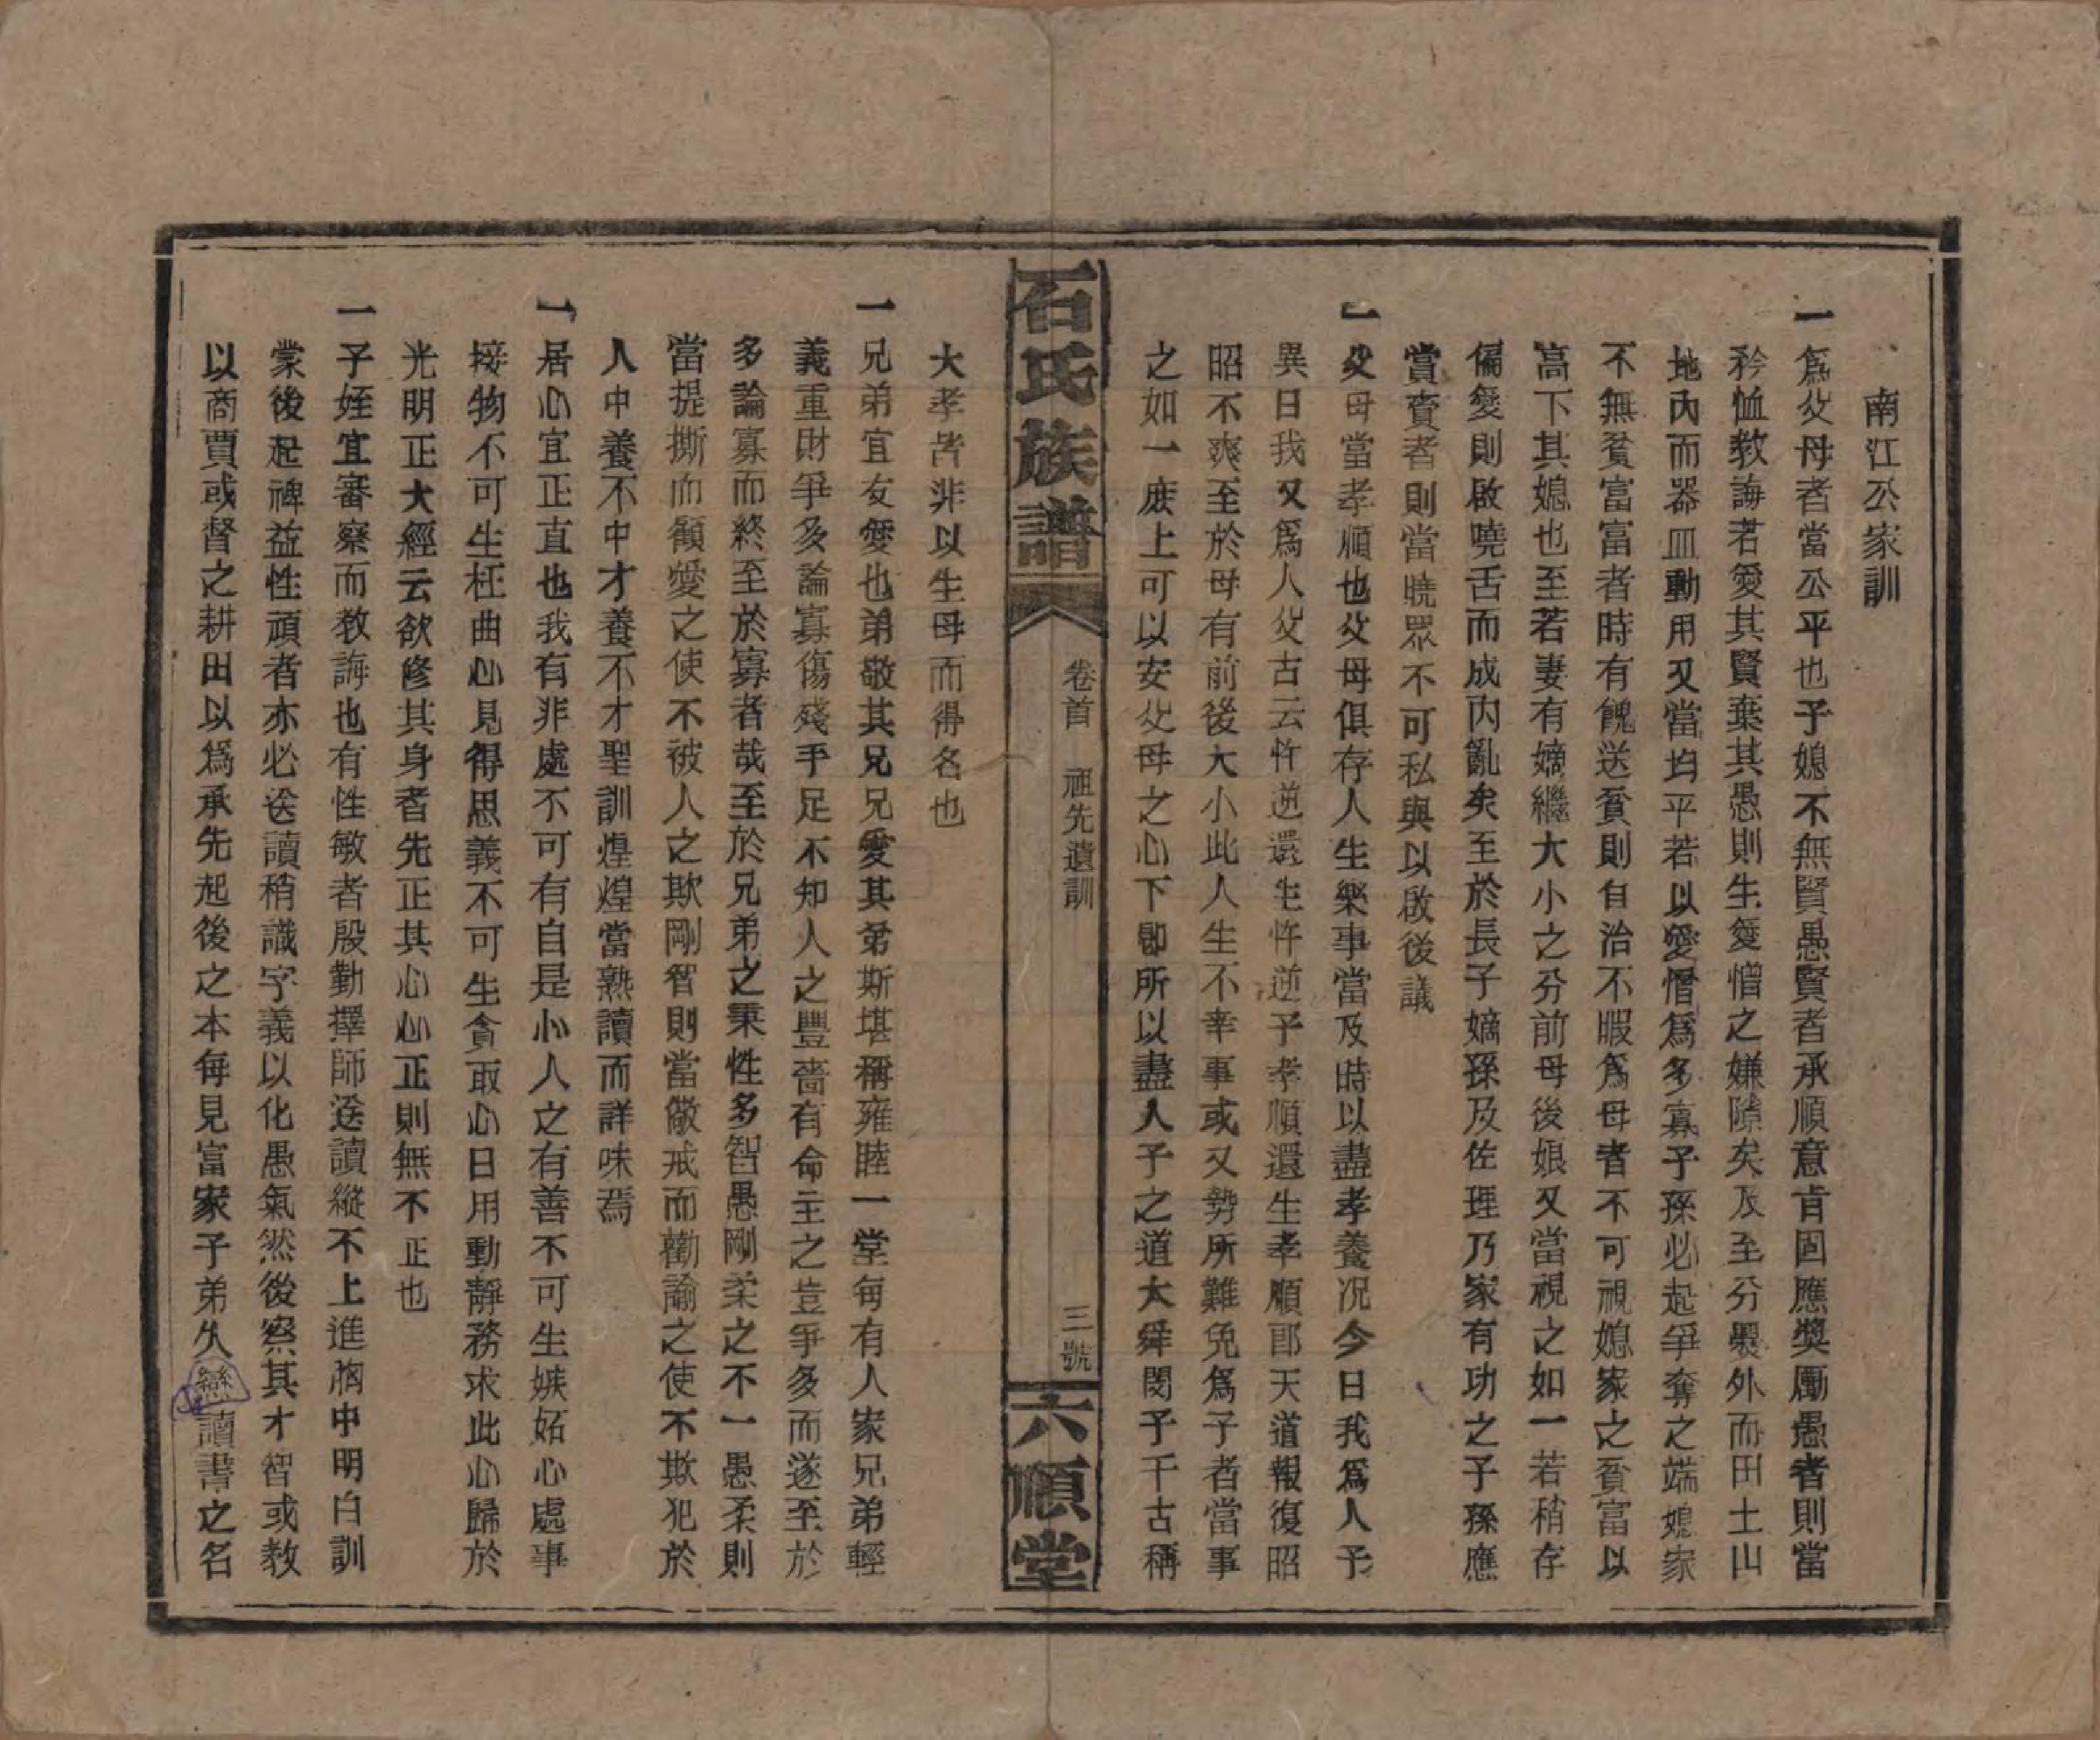 南江公家訓
一爲父母者當公平也子媳不無賢愚賢者承順意肯固應奬勵愚者則當
矜恤教誨若愛其賢棄其愚則生愛憎之嫌隙矣及至分爨外而田土山
地內而器皿動用又當均平若以愛憎爲多寡子孫必起爭奪之端媳家
不無貧富富者時有餽送貧則自治不暇爲母者不可視媳家之貧富以
高下其媳也至若妻有嫡繼大小之分前母後娘又當視之如一若稍存
偏愛則啟曉舌而成內亂矣至於長子嫡孫及佐理乃家有功之子孫應
當賫者則當曉眾不可私與以啟後議
一父母當孝順也父母俱存人生樂事當及時以盡孝養况今日我爲人子
異日我又爲人父古云忤逆還生忤逆子孝順還生孝順郎天道報復昭
昭不爽至於母有前後大小此人生不幸事或又勢所難免爲子者當事
之如一庶上可以安父母之心下卽所以盡人子之道大舜閔子千古稱
石氏族譜
卷首 祖先遺訓
三號
六順堂
大孝皆非以生母而得名也
一兄弟宜友愛也弟敬其兄兄愛其弟斯堪稱雍睦一堂每有人家兄弟輕
義重財爭多論寡傷殘手足不知人之豐嗇有命主之豈爭多而遂至於
多論寡而終至於寡者哉至於兄弟之秉性多智愚剛柔之不一愚柔則
當提撕而顧愛之使不被人之欺剛智則當儆戒而勸諭之使不欺犯於
人中養不中才養不才聖訓煌煌當熟讀而詳味焉
一居心宜正直也我有非處不可有自是小人之有善不可生嫉妬心處事
接物不可生枉曲心見得思義不可生貪取心日用動靜務求此心歸於
光明正大經云欲修其身者先正其心心正則無不正也
一子姪宜審察而教誨也有性敏者殷勤擇師送讀縱不上進胸中明白訓
蒙後起裨益性頑者亦必送讀稍識字義以化愚氣然後察其才智或教
以商賈或督之耕田以爲承先起後之本每見富家子弟久戀讀書之名